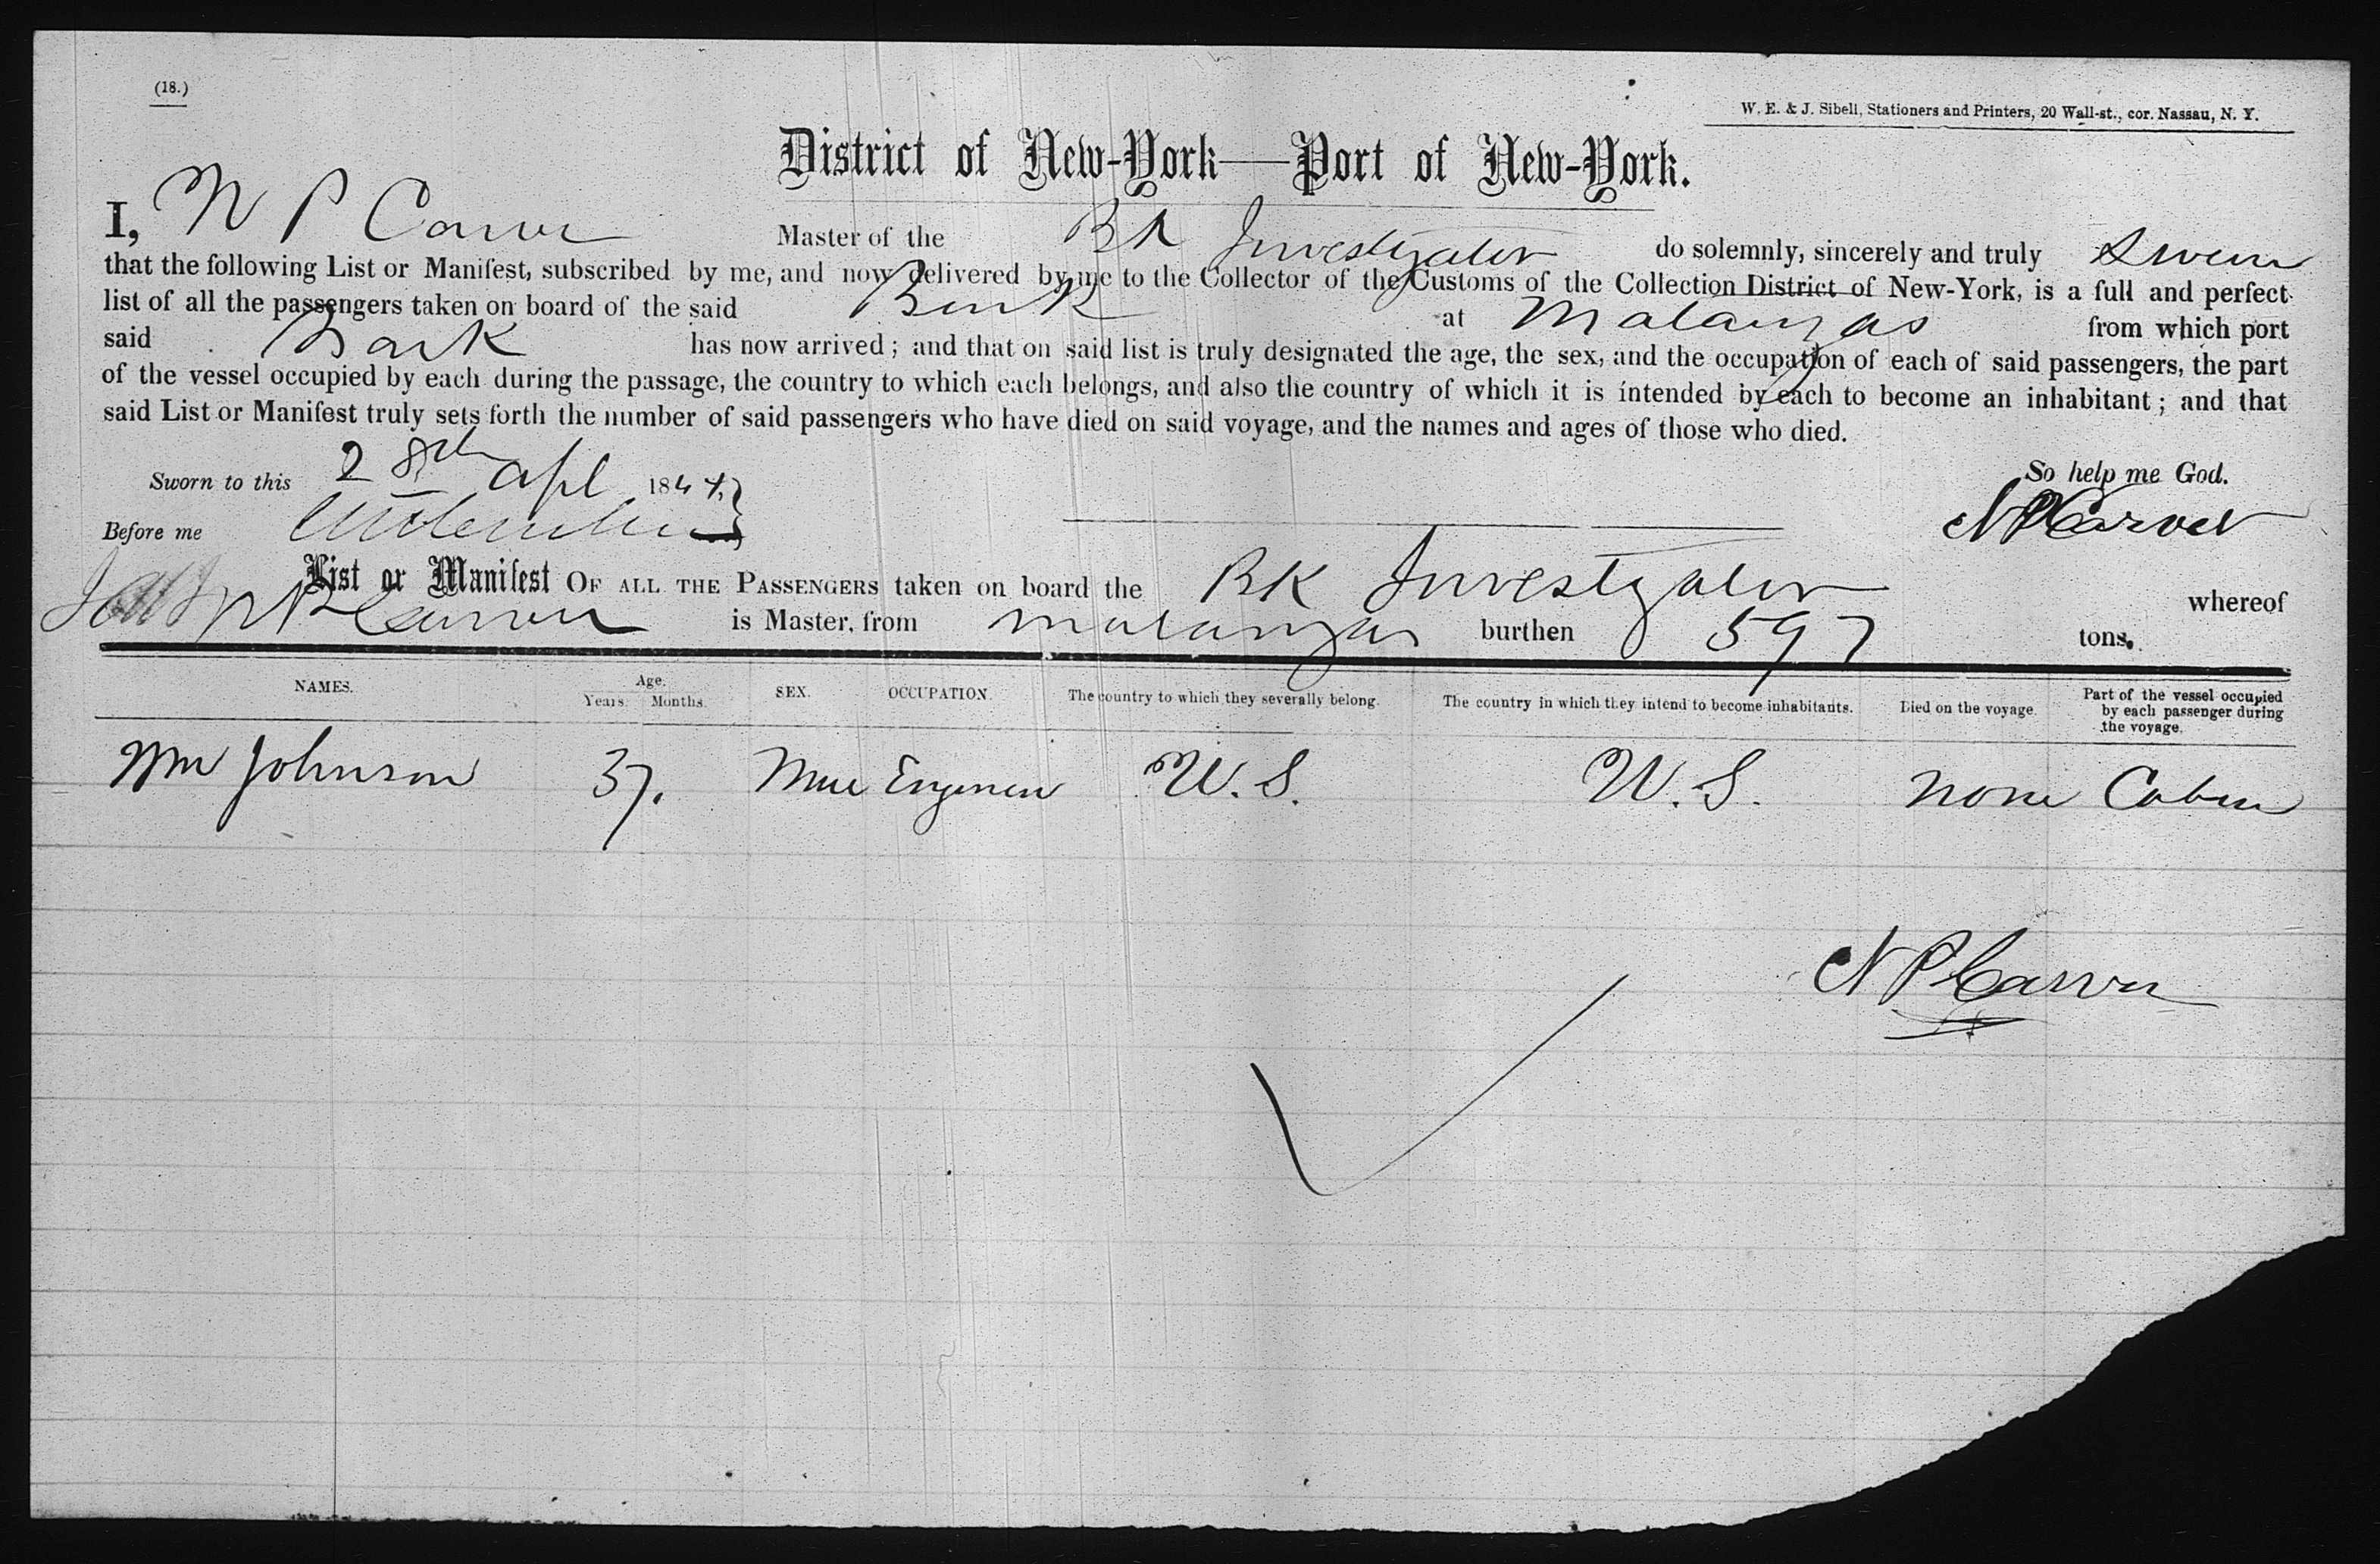 (18.)
W. E. & J. Sibell, Stationers and Printers, 20 Wall-st., cor. Nassau, N. Y.
District of New-York—Port of New-York.
I, N P Carver Master of the Bk Investigator do solemnly, sincerely and truly Swear
that the following List or Manifest, subscribed by me, and now delivered by me to the Collector of the Customs of the Collection District of New-York, is a full and perfect
list of all the passengers taken on board of the said Bark at Matanzas from which port
said Bark has now arrived; and that on said list is truly designated the age, the sex, and the occupation of each of said passengers, the part
of the vessel occupied by each during the passage, the country to which each belongs, and also the country of which it is intended by each to become an inhabitant; and that
said List or Manifest truly sets forth the number of said passengers who have died on said voyage, and the names and ages of those who died.
Sworn to this 28th Apl 186 So help me God.
Before me N P Carver
List or Manifest OF ALL THE PASSENGERS taken on board the BK Investigator whereof
N P Carver is Master, from Matanzas burthen 597 tons.
NAMES. Age. Years. Months. SEX. OCCUPATION. The country to which they severally belong. The country in which they intend to become inhabitants. Died on the voyage. Part of the vessel occupied by each passenger during the voyage.
Wm Johnson 37. Male Engineer U.S. U.S. None Cabin
N P Carver